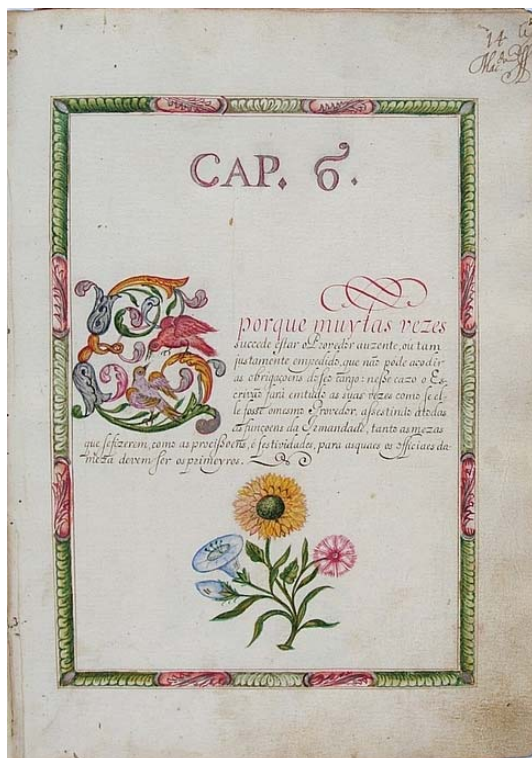 14
CAP. 6.
E porque muytas vezes
succede estar o Provedor auzente, ou tam
justamente empedido, que não póde acodir
as obrigaçoens do seo cargo: nesse cazo o Es-
crivão fará em tudo as suas vezes como se el-
le fosse o mesmo Provedor, assestindo a todas
as funçoens da Irmandade, tanto as mezas
que se fizerem, como as prosissoens, e festividades, para as quaes os officiaes da
meza devem ser os primeyros.